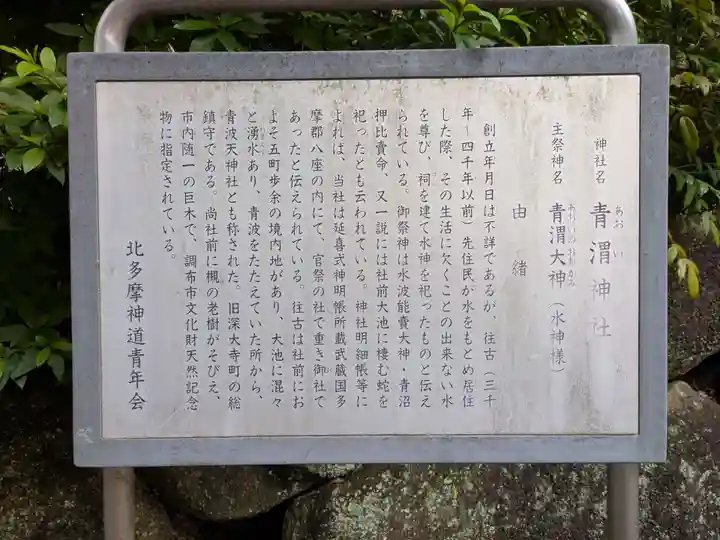 神社名 青渭神社
あおい
主祭神名 青渭大神(水神様)
あおいのおおかみ
由緒
創立年月日は不詳であるが、往古(三千
年―四千年以前)先住民が水をもとめ居住
した際、その生活に欠くことの出来ない水
を尊び、祠を建て水神を祀ったものと伝え
られている。御祭神は水波能賣大神・青沼
押比賣命、又一説には社前大池に棲む蛇を
祀ったとも云われている。神社明細帳等に
よれば、当社は延喜式神明帳所載武蔵国多
摩郡八座の内にて、官祭の社で重き御社で
あったと伝えられている。往古は社前にお
よそ五町歩余の境内地があり、大池に混々
と湧水あり、青波をたたえていた所から、
青波天神社とも称された。旧深大寺町の総
鎮守である。尚社前に槻の老樹がそびえ、
市内随一の巨木で、調布市文化財天然記念
物に指定されている。
北多摩神道青年会